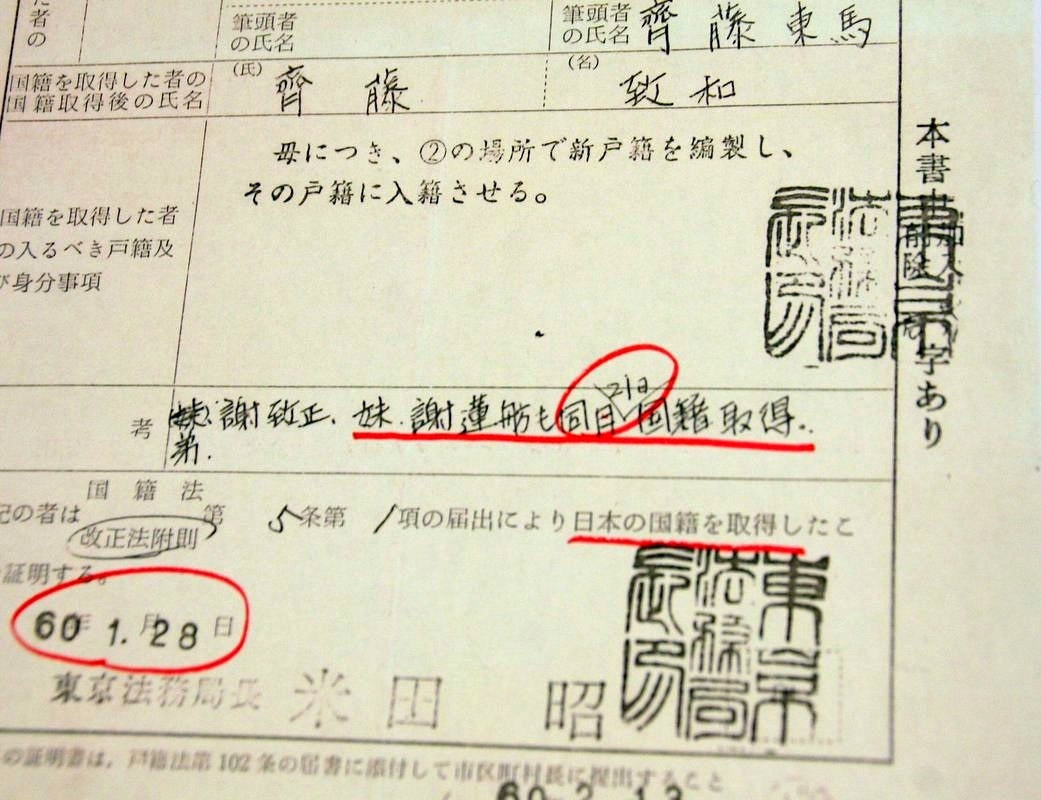 た
者の
筆頭者
の氏名
筆頭者
の氏名 齊藤東馬
国籍を取得した者の
国籍取得後の氏名
(氏) 齊藤
(名) 致和
母につき、②の場所で新戸籍を編製し、
その戸籍に入籍させる。
国籍を取得した者
の入るべき戸籍及
び身分事項
本書
字あり
東京法務局長印
考
謝致正、妹.謝蓮舫も同日国籍取得.
弟.
21日
国籍法
記の者は 第5条第1項の届出により日本の国籍を取得したこ
改正法附則
証明する。
60年1.月28日
東京法務局長 米田 昭
東京法務局長印
の証明書は、戸籍法第102条の届書に添付して市区町村長に提出すること
60.2.13